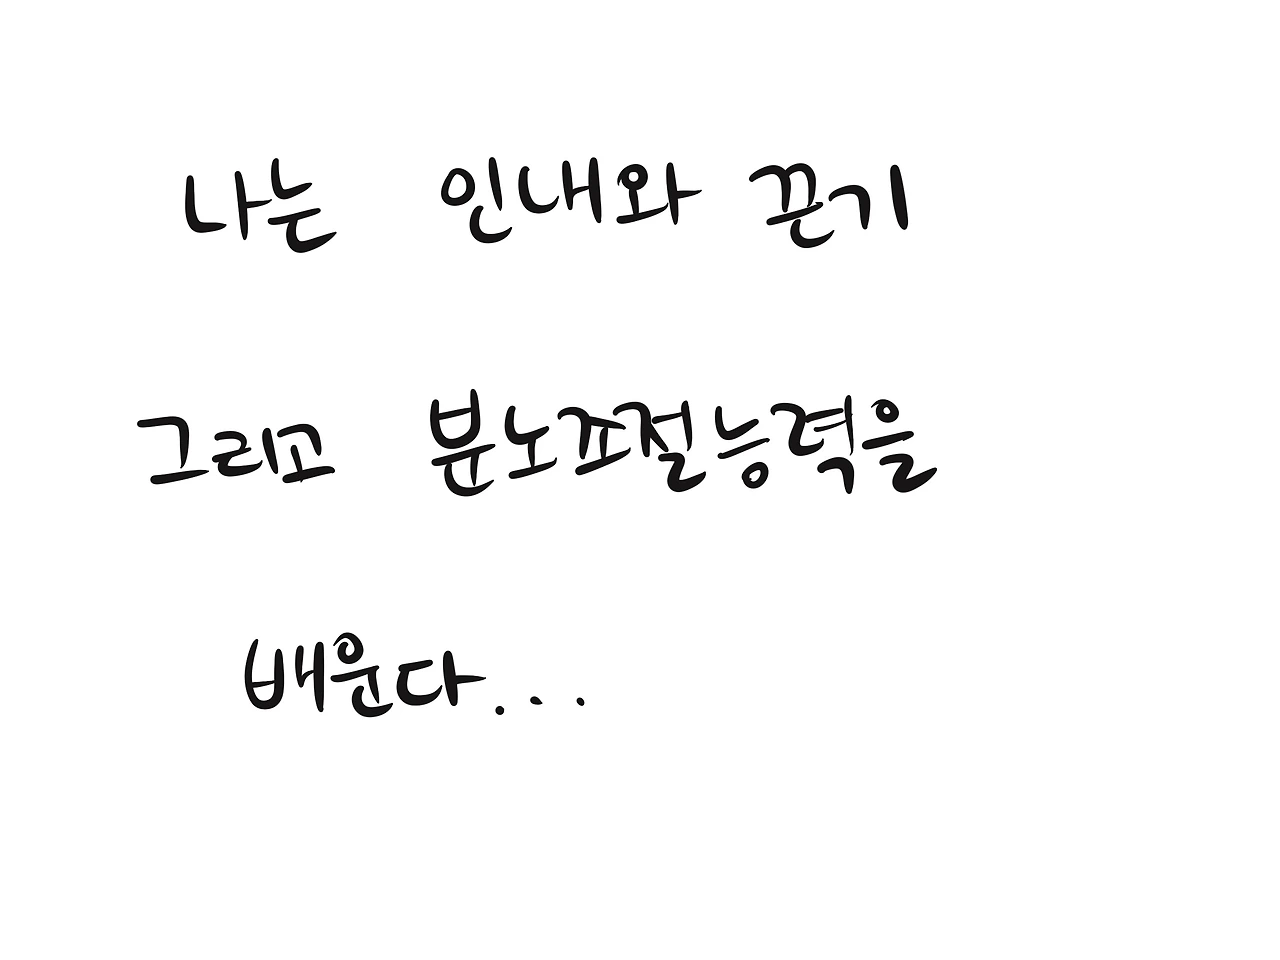 나는 인내와 끈기
그리고 분노조절능력을
배운다...